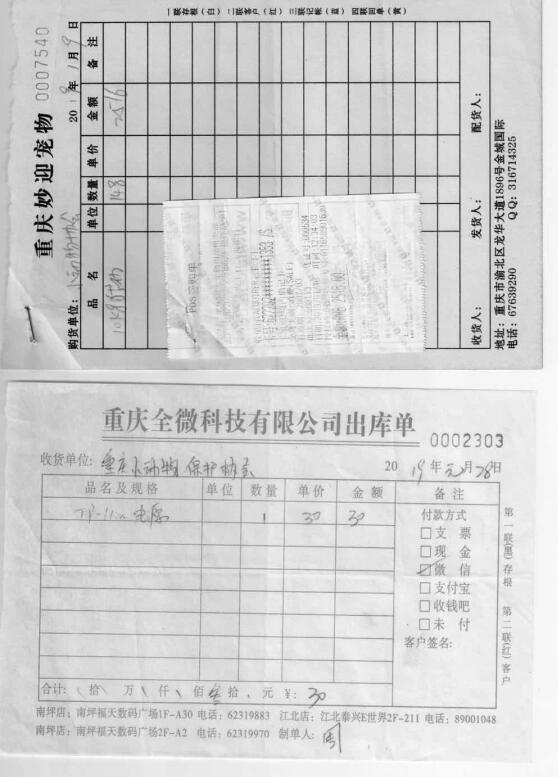 一联存根(白) 二联客户(红) 三联记帐(蓝) 四联回单(黄)
重庆妙迎宠物 0007540
购货单位: 小动物协会 2019年1月9日
品名 单位 数量 单价 金额 备注
148 2516
POS签购单
收货人: 发货人: 配货人:
地址: 重庆市渝北区龙华大道1896号金城国际
电话: 67639290 QQ: 316714325
重庆全微科技有限公司出库单 0002303
收货单位: 重庆小动物保护协会 2019年元月28日
品名及规格 单位 数量 单价 金额 备注
电源 1 30 30
付款方式
支票
现金
微信
支付宝
收钱吧
未付
客户签名:
第一联(黑)存根 第二联(红)客户
合计: 拾 万 仟 佰 叁拾 元 ¥: 30
南坪店: 南坪福天数码广场1F-A30 电话: 62319883 江北店: 江北泰兴E世界2F-211 电话: 89001048
南坪店: 南坪福天数码广场2F-A2 电话: 62319970 制单人: 周